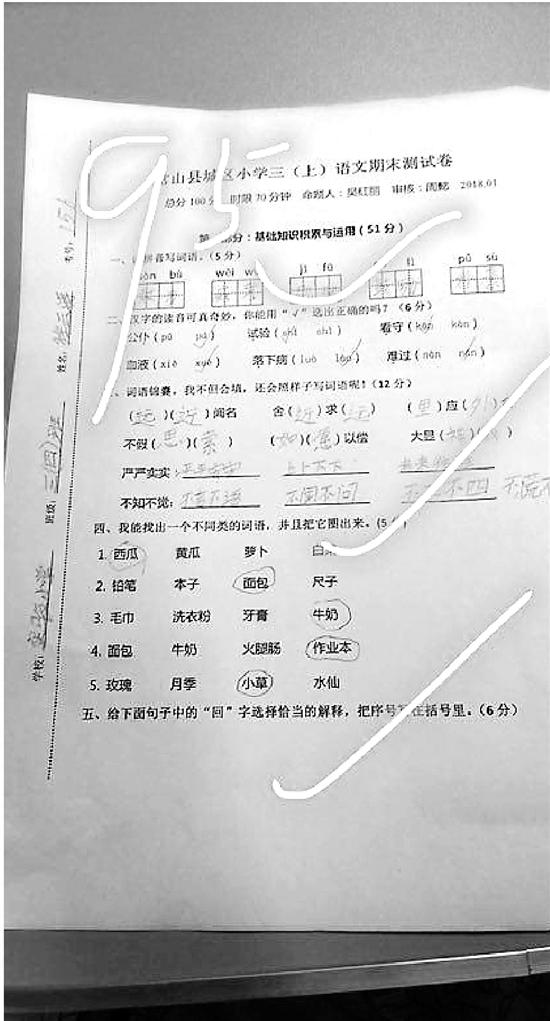 95
山县城区小学三（上）语文期末测试卷
总分100分 时限70分钟 命题人：吴红丽 审核：周懿 2018.01
部分：基础知识积累与运用（51分）
拼音写词语。（5分）
bù wèi jì fù pǔ sù
二、汉字的读音可真奇妙，你能用“√”选出正确的吗？（6分）
公仆（pū pú） 试验（shì shì） 看守（kān kàn）
血液（xiě xuè） 落下病（luò lào） 难过（nán nàn）
词语锦囊，我不但会填，还会照样子写词语呢！（12分）
（远）（近）闻名 舍（近）求（远） （里）应（外）
不假（思）（索） （如）（愿）以偿 大显（ ）（ ）
严严实实： 上上下下
不知不觉： 不闻不问 不四
四、我能找出一个不同类的词语，并且把它圈出来。（5分）
1. 西瓜 黄瓜 萝卜 白菜
2. 铅笔 本子 面包 尺子
3. 毛巾 洗衣粉 牙膏 牛奶
4. 面包 牛奶 火腿肠 作业本
5. 玫瑰 月季 小草 水仙
五、给下面句子中的“回”字选择恰当的解释，把序号 在括号里。（6分）
学校： 实验小学 班级： 三（四）班 姓名： 考号： 151